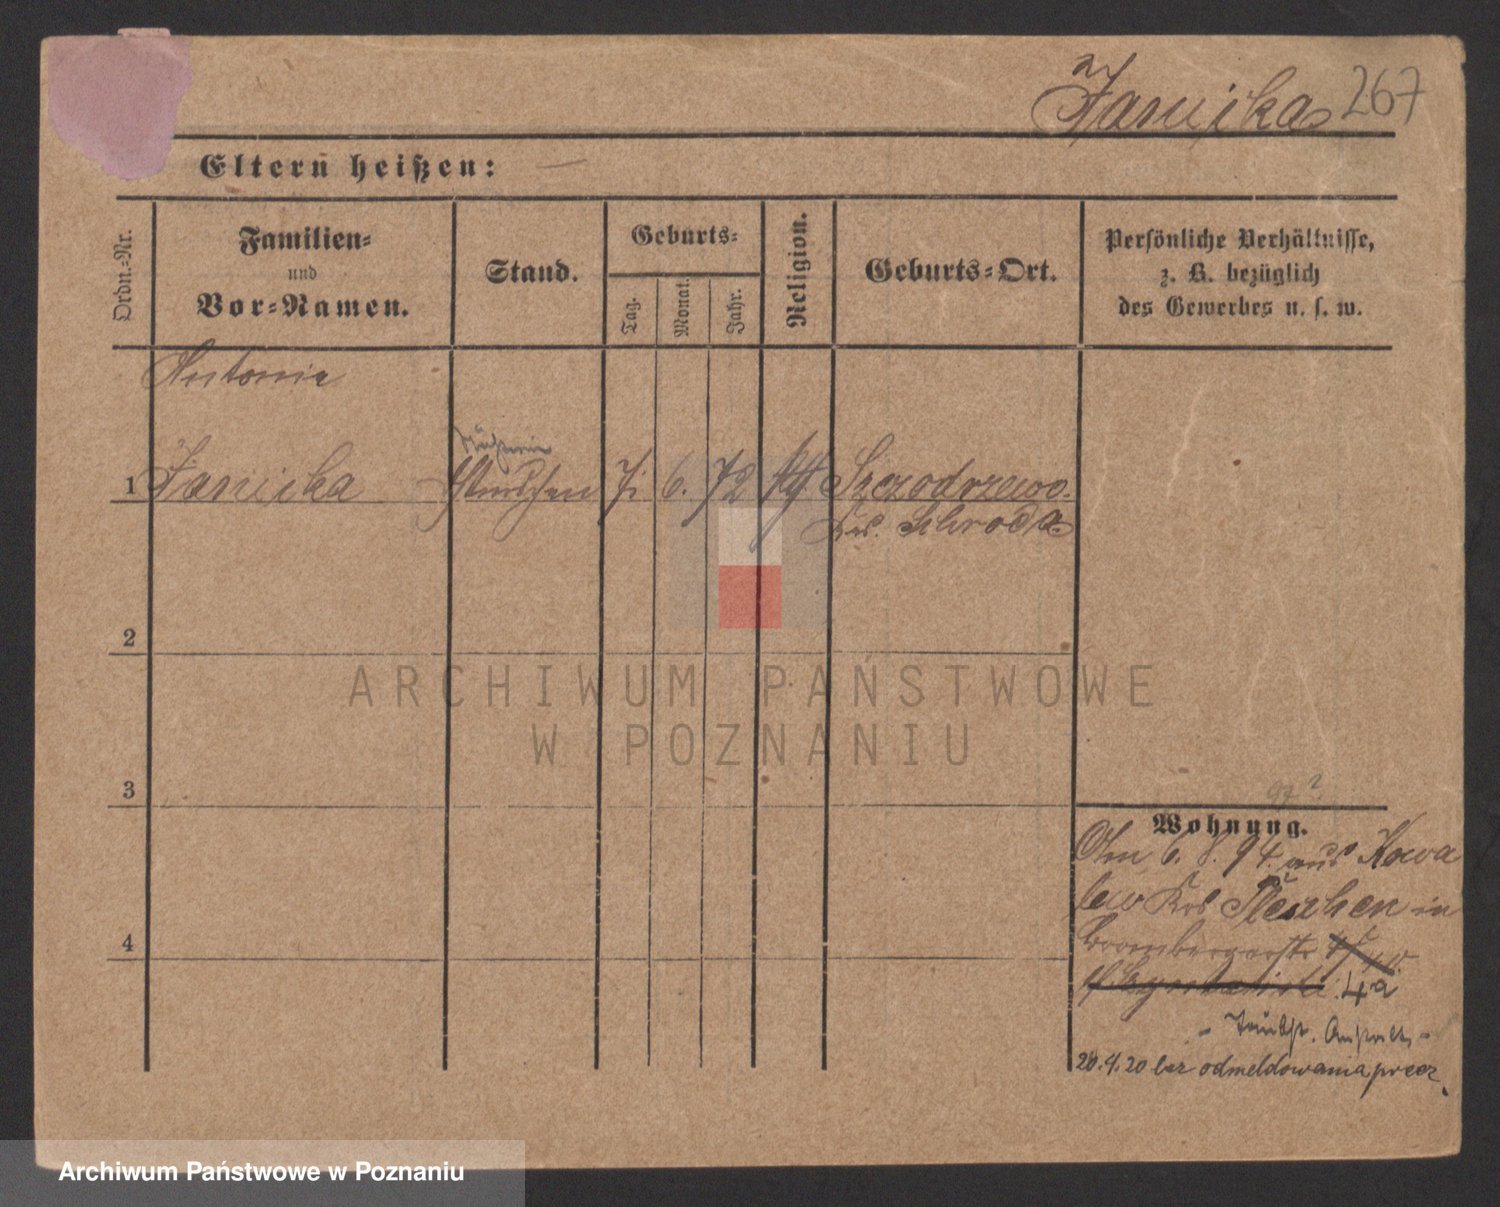 Jarnicka 267
Eltern heißen: —
Ordn.-Nr.
Familien-
und
Vor-Namen.
Stand.
Geburts-
Tag.
Monat.
Jahr.
Religion.
Geburts-Ort.
Persönliche Verhältnisse,
z. B. bezüglich
des Gewerbes u. s. w.
Antonie
1 7. 6. 72 Szczodrzewo.
Krs. Schroda
2
3
4
ARCHIWUM PAŃSTWOWE
W POZNANIU
97 ?
Wohnung.
Am 6. 8. 94. aus Kowa
lew Krs Pleschen in
Brombergerstr
4a
- Taubst. Anstalt -
20.4.20 bez odmeldowania precz
Archiwum Państwowe w Poznaniu